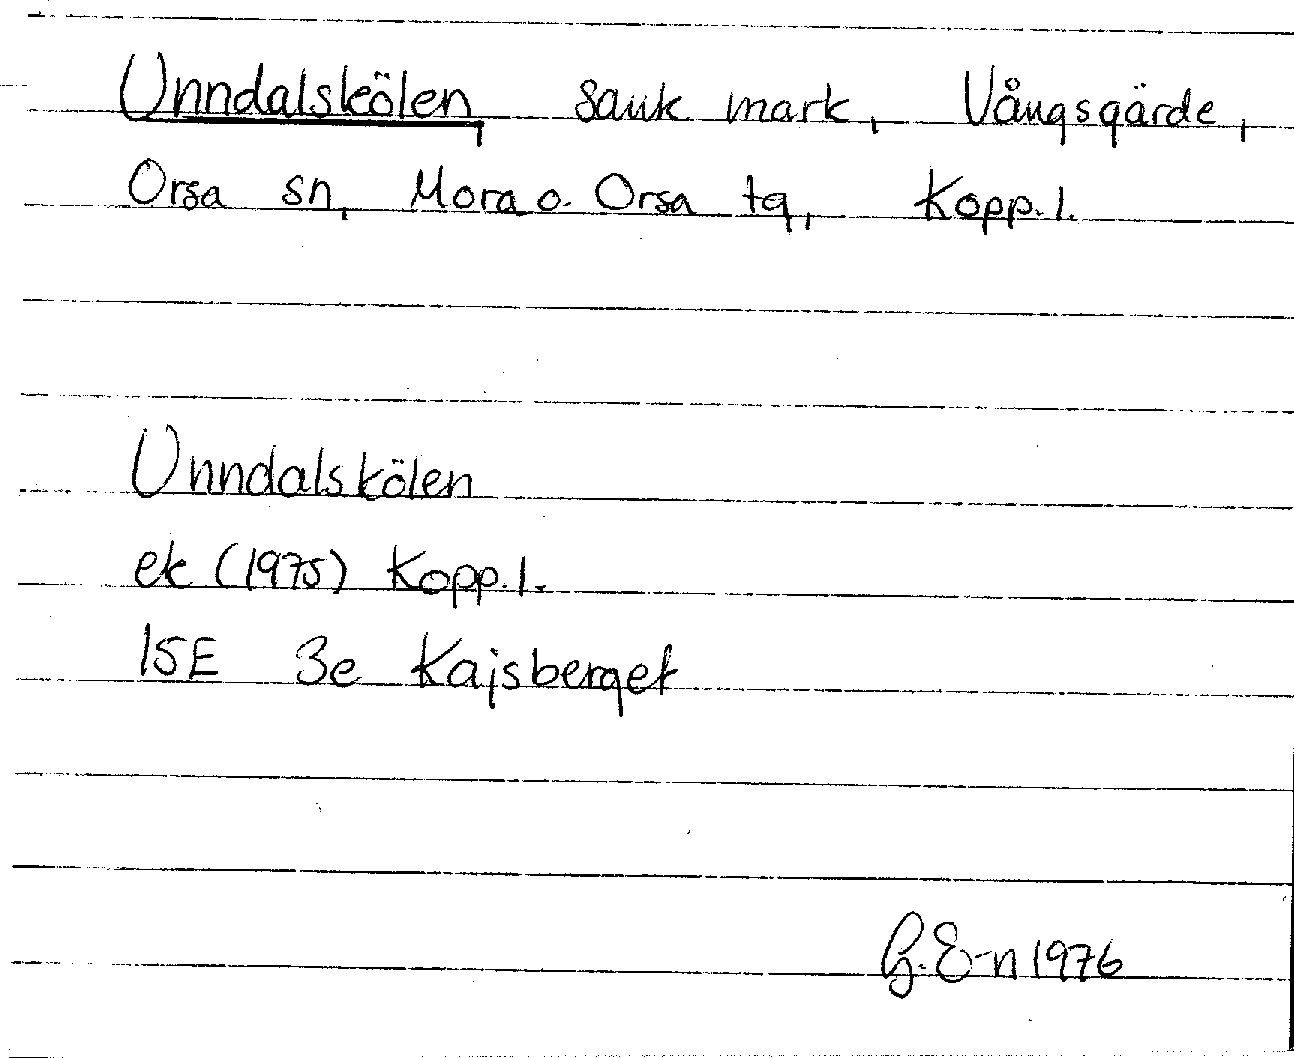 Unndalskölen, sank mark, Vångsgärde,
Orsa sn, Mora o. Orsa tg, Kopp. l.
Unndalskölen
ek (1975) Kopp. l.
15E 3e Kajsberget
G. E-n 1976